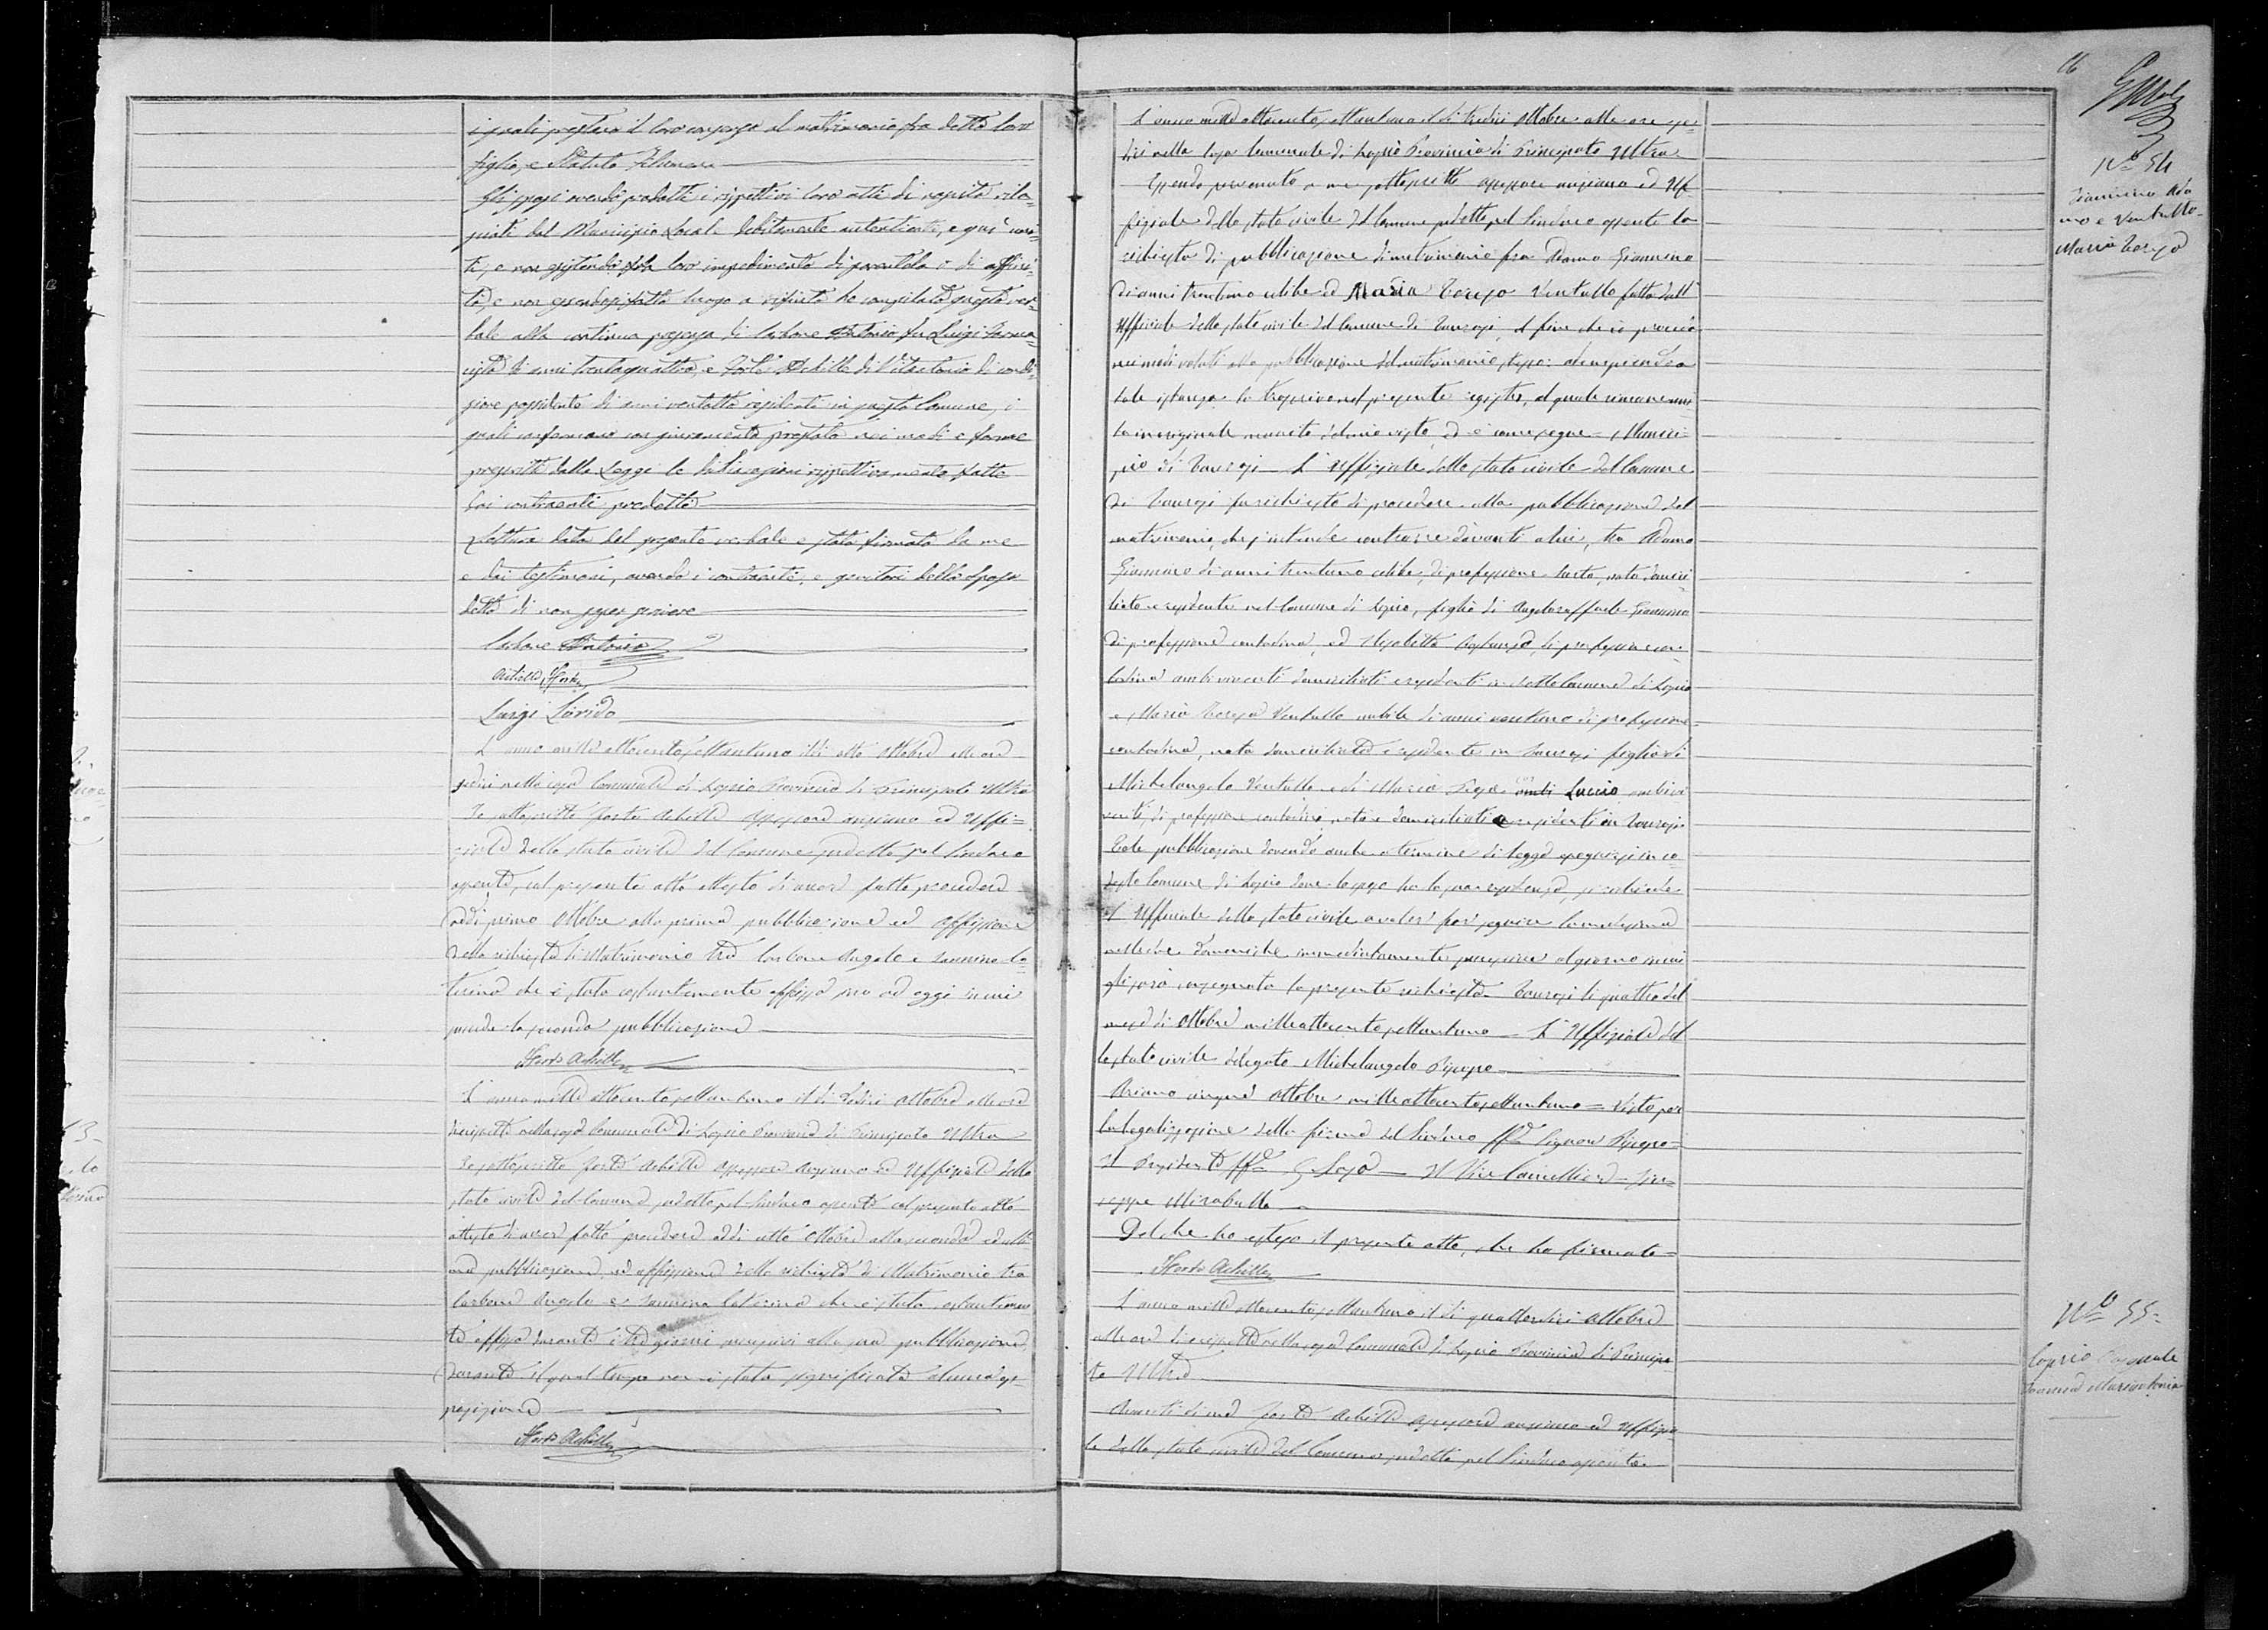 i quali prestano il loro consenso al matrimonio fra detta loro
figlia, e Statuto
Gli sposi avendo prodotti i rispettivi loro atti di nascita rila=
sciati dal Municipio Locale debitamente autenticati, e qui uni=
ti, e non esistendo fra loro impedimento di parentela o di affini=
tà, e non essendosi fatto luogo a rifiuto ho compilato questo ver=
bale alla continua presenza di Carbone Antonio fu Luigi
di anni trentaquattro, e Forte Achille di Vitantonio di condi=
zione possidente di anni ventotto residenti in questo Comune, i
quali confermano con giuramento prestato nei modi e forme
prescritte dalla Legge le dichiarazioni rispettivamente fatte
dai contraenti predetti
Lettura data del presente verbale è stato firmato da me
e dai testimoni, avendo i contraenti, e genitori della sposa
detto di non saper scrivere
Carbone Antonio
Achille Forte
Luigi
L'anno mille ottocento settantuno il dì otto Ottobre alle ore
sedici nella casa Comunale di Provincia di Principato Ultra
Io sottoscritto Forte Achille Assessore anziano ed Uffi=
ziale dello stato civile del Comune predetto pel Sindaco
assente, col presente atto attesto di aver fatto procedere
addì primo Ottobre alla prima pubblicazione ed affissione
della richiesta di Matrimonio tra Carbone Angelo e Iannino Ca=
terina che è stata costantemente affissa sino ad oggi in cui
procede la seconda pubblicazione
Forte Achille
L'anno mille ottocento settantuno il dì dodici Ottobre alle ore
diecisette nella casa Comunale di Provincia di Principato Ultra
Io sottoscritto Forte Achille Assessore Anziano ed Uffiziale dello
stato civile del Comune predetto pel Sindaco assente col presente atto
attesto di aver fatto procedere addì otto Ottobre alla seconda ed ulti
ma pubblicazione, ed affissione della richiesta di Matrimonio tra
Carbone Angelo e Iannino Caterina che è stata costantemen
te affissa durante i tre giorni successivi alla sua pubblicazione,
durante il qual tempo non è stata significata alcuna op=
posizione
Forte Achille
16
N.º 54
Giannino Ada
mo e Ventullo
Maria Teresa
L'anno mille ottocento settantuno il dì tredici Ottobre alle ore se=
dici nella Casa Comunale di Provincia di Principato Ultra
Essendo pervenuto a me sottoscritto assessore anziano ed Uf=
fiziale dello stato civile del Comune predetto pel Sindaco assente la
richiesta di pubblicazione di matrimonio fra Adamo Giannino
di anni trentuno celibe ed Maria Teresa Ventullo fatta dall'
Ufficiale dello stato civile del Comune di Taurasi, al fine che io proceda
nei modi voluti alla pubblicazione del matrimonio stesso: adempiendo a
tale istanza la trascrivo nel presente registro, al quale rimane uni
ta in originale munita del mio visto, ed è come segue = Munici=
pio di Taurasi = L'Uffiziale dello stato civile del Comune
di Taurasi fu richiesto di procedere alla pubblicazione del
matrimonio, che s'intende contrarre davanti a lui, tra Adamo
Giannino di anni trentuno celibe, di professione sarto, nato domici
liato e residente nel Comune di figlio di Angeloraffaele Giannino
di professione contadino, ed Nicoletta di professione con=
tadina ambi viventi domiciliati e residenti in detto Comune di
e Maria Teresa Ventullo nubile di anni ventuno di professione
contadina, nata domiciliata e residente in Taurasi figlia di
Michelangelo Ventullo e di Maria Luccio ambi vi
venti di professione contadini, nati e domiciliati e residenti in Taurasi
Tale pubblicazione dovendo anche a termine di legge eseguirsi in co
desto Comune di dove lo sposo ha la sua residenza, si richiede
l'Ufficiale dello stato civile a voler far seguire la medesima
nelle due domeniche immediatamente successive al giorno in cui
gli sarà consegnata la presente richiesta = Taurasi li quattro del
mese di Ottobre milleottocentosettantuno = L'Uffiziale del
lo stato civile delegato Michelangelo
Ariano Ottobre milleottocentosettantuno = Visto per
la legalizzazione della firma del Sindaco ff. Signor
Il Presidente ff. Il Vice Cancelliere = Giu=
seppe Mirabella
Del che ho esteso il presente atto, che ho firmato =
Forte Achille
N.º 55=
Caprio Pasquale
Iannino Mariantonia
L'anno mille ottocento settantuno il dì quattordici Ottobre
alle ore diecisette nella casa Comunale di Provincia di Principa
to Ultra
Avanti di me Forte Achille assessore anziano ed Uffizia
le dello stato civile del Comune predetto pel Sindaco assente